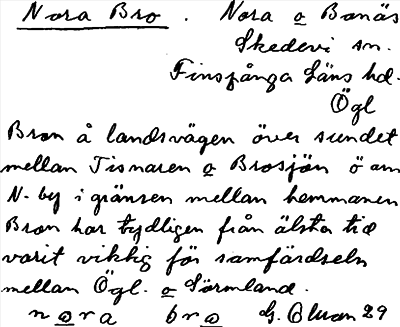 Nora Bro. Nora o Bonäs
Skedevi sn.
Finspånga Läns hd.
Ögl
Bron å landsvägen över sundet
mellan Tisnaren o Brosjön ö om
N. by i gränsen mellan hemmanen
Bron har tydligen från älsta tid
varit viktig för samfärdseln
mellan Ögl. o Sörmland.
nora bro G. Ohson 29